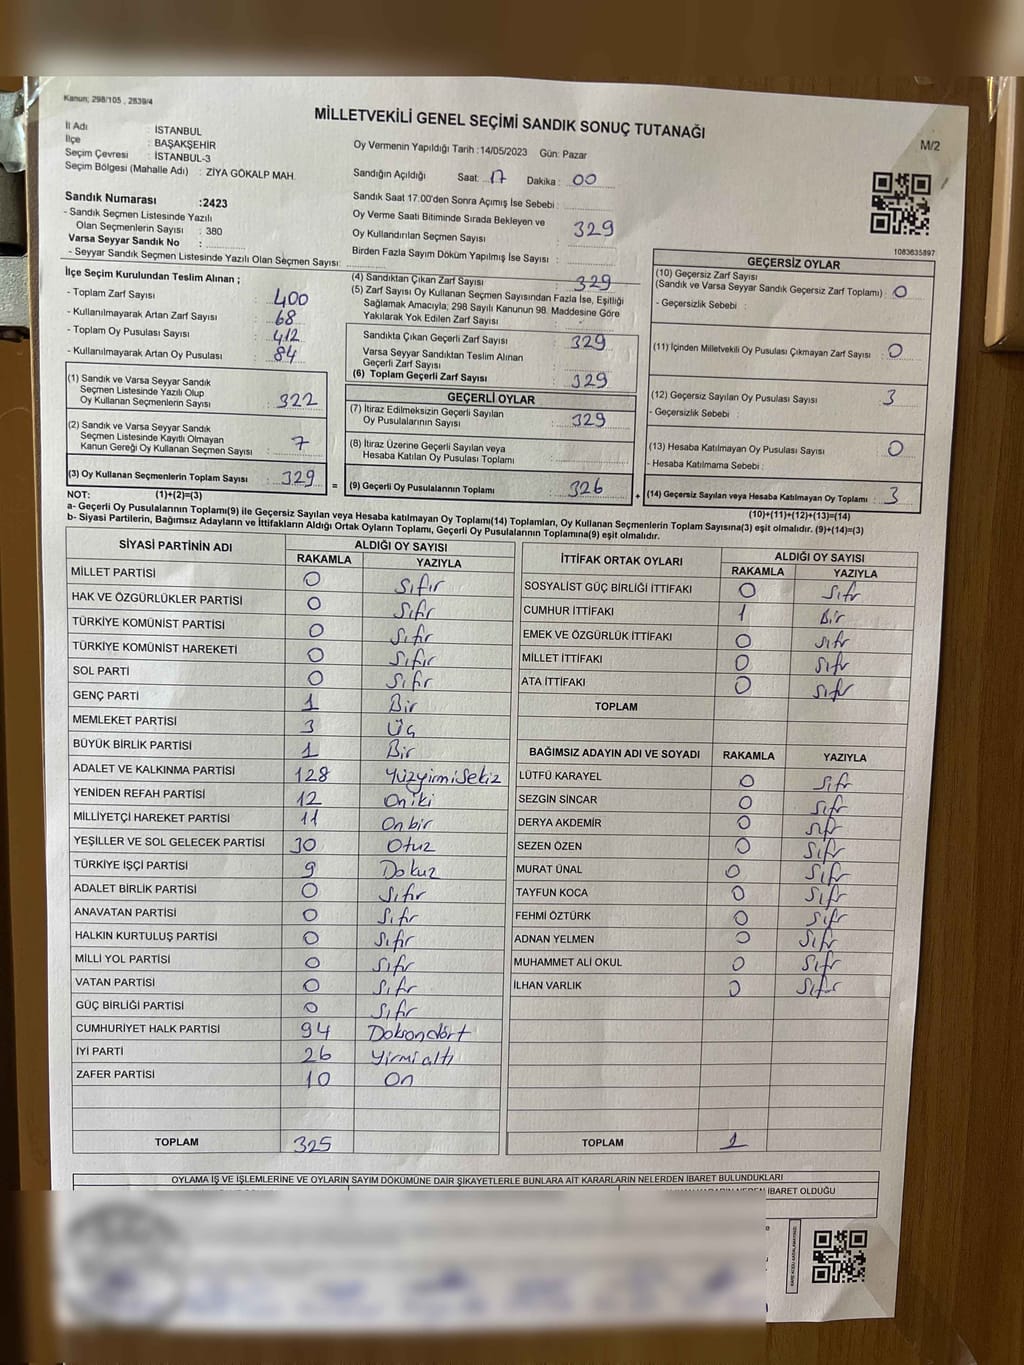 Kanun; 298/105 , 2839/4
MİLLETVEKİLİ GENEL SEÇİMİ SANDIK SONUÇ TUTANAĞI
M/2
İl Adı : İSTANBUL
İlçe : BAŞAKŞEHİR
Seçim Çevresi : İSTANBUL-3
Seçim Bölgesi (Mahalle Adı) : ZİYA GÖKALP MAH.
Oy Vermenin Yapıldığı Tarih :14/05/2023 Gün: Pazar
Sandığın Açıldığı Saat: 17 Dakika : 00
Sandık Saat 17:00'den Sonra Açımış İse Sebebi :
Oy Verme Saati Bitiminde Sırada Bekleyen ve
Oy Kullandırılan Seçmen Sayısı : 329
Birden Fazla Sayım Döküm Yapılmış İse Sayısı :
Sandık Numarası :2423
- Sandık Seçmen Listesinde Yazılı
Olan Seçmenlerin Sayısı : 380
Varsa Seyyar Sandık No :
- Seyyar Sandık Seçmen Listesinde Yazılı Olan Seçmen Sayısı:
1083635897
İlçe Seçim Kurulundan Teslim Alınan ;
- Toplam Zarf Sayısı : 400
- Kullanılmayarak Artan Zarf Sayısı : 68
- Toplam Oy Pusulası Sayısı : 412
- Kullanılmayarak Artan Oy Pusulası : 84
(1) Sandık ve Varsa Seyyar Sandık
Seçmen Listesinde Yazılı Olup
Oy Kullanan Seçmenlerin Sayısı : 322
(2) Sandık ve Varsa Seyyar Sandık
Seçmen Listesinde Kayıtlı Olmayan
Kanun Gereği Oy Kullanan Seçmen Sayısı : 7
(3) Oy Kullanan Seçmenlerin Toplam Sayısı : 329
(4) Sandıktan Çıkan Zarf Sayısı : 329
(5) Zarf Sayısı Oy Kullanan Seçmen Sayısından Fazla İse, Eşitliği
Sağlamak Amacıyla; 298 Sayılı Kanunun 98. Maddesine Göre
Yakılarak Yok Edilen Zarf Sayısı :
Sandıkta Çıkan Geçerli Zarf Sayısı : 329
Varsa Seyyar Sandıktan Teslim Alınan
Geçerli Zarf Sayısı :
(6) Toplam Geçerli Zarf Sayısı : 329
GEÇERLİ OYLAR
(7) İtiraz Edilmeksizin Geçerli Sayılan
Oy Pusulalarının Sayısı : 329
(8) İtiraz Üzerine Geçerli Sayılan veya
Hesaba Katılan Oy Pusulası Toplamı :
= (9) Geçerli Oy Pusulalarının Toplamı : 326
GEÇERSİZ OYLAR
(10) Geçersiz Zarf Sayısı
(Sandık ve Varsa Seyyar Sandık Geçersiz Zarf Toplamı) : 0
- Geçersizlik Sebebi :
(11) İçinden Milletvekili Oy Pusulası Çıkmayan Zarf Sayısı : 0
(12) Geçersiz Sayılan Oy Pusulası Sayısı : 3
- Geçersizlik Sebebi :
(13) Hesaba Katılmayan Oy Pusulası Sayısı : 0
- Hesaba Katılmama Sebebi :
+ (14) Geçersiz Sayılan veya Hesaba Katılmayan Oy Toplamı : 3
NOT: (1)+(2)=(3)
(10)+(11)+(12)+(13)=(14)
a- Geçerli Oy Pusulalarının Toplamı(9) ile Geçersiz Sayılan veya Hesaba katılmayan Oy Toplamı(14) Toplamları, Oy Kullanan Seçmenlerin Toplam Sayısına(3) eşit olmalıdır. (9)+(14)=(3)
b- Siyasi Partilerin, Bağımsız Adayların ve İttifakların Aldığı Ortak Oyların Toplamı, Geçerli Oy Pusulalarının Toplamına(9) eşit olmalıdır.
SİYASİ PARTİNİN ADI ALDIĞI OY SAYISI
RAKAMLA YAZIYLA
MİLLET PARTİSİ 0 Sıfır
HAK VE ÖZGÜRLÜKLER PARTİSİ 0 Sıfır
TÜRKİYE KOMÜNİST PARTİSİ 0 Sıfır
TÜRKİYE KOMÜNİST HAREKETİ 0 Sıfır
SOL PARTİ 0 Sıfır
GENÇ PARTİ 1 Bir
MEMLEKET PARTİSİ 3 Üç
BÜYÜK BİRLİK PARTİSİ 1 Bir
ADALET VE KALKINMA PARTİSİ 128 Yüzyirmisekiz
YENİDEN REFAH PARTİSİ 12 Oniki
MİLLİYETÇİ HAREKET PARTİSİ 11 Onbir
YEŞİLLER VE SOL GELECEK PARTİSİ 30 Otuz
TÜRKİYE İŞÇİ PARTİSİ 9 Dokuz
ADALET BİRLİK PARTİSİ 0 Sıfır
ANAVATAN PARTİSİ 0 Sıfır
HALKIN KURTULUŞ PARTİSİ 0 Sıfır
MİLLİ YOL PARTİSİ 0 Sıfır
VATAN PARTİSİ 0 Sıfır
GÜÇ BİRLİĞİ PARTİSİ 0 Sıfır
CUMHURİYET HALK PARTİSİ 94 Doksandört
İYİ PARTİ 26 Yirmialtı
ZAFER PARTİSİ 10 On
TOPLAM 325
İTTİFAK ORTAK OYLARI ALDIĞI OY SAYISI
RAKAMLA YAZIYLA
SOSYALİST GÜÇ BİRLİĞİ İTTİFAKI 0 Sıfır
CUMHUR İTTİFAKI 1 Bir
EMEK VE ÖZGÜRLÜK İTTİFAKI 0 Sıfır
MİLLET İTTİFAKI 0 Sıfır
ATA İTTİFAKI 0 Sıfır
TOPLAM
BAĞIMSIZ ADAYIN ADI VE SOYADI RAKAMLA YAZIYLA
LÜTFÜ KARAYEL 0 Sıfır
SEZGİN SİNCAR 0 Sıfır
DERYA AKDEMİR 0 Sıfır
SEZEN ÖZEN 0 Sıfır
MURAT ÜNAL 0 Sıfır
TAYFUN KOCA 0 Sıfır
FEHMİ ÖZTÜRK 0 Sıfır
ADNAN YELMEN 0 Sıfır
MUHAMMET ALİ OKUL 0 Sıfır
İLHAN VARLIK 0 Sıfır
TOPLAM 1
OYLAMA İŞ VE İŞLEMLERİNE VE OYLARIN SAYIM DÖKÜMÜNE DAİR ŞİKAYETLERLE BUNLARA AİT KARARLARIN NELERDEN İBARET BULUNDUKLARI
İBARET OLDUĞU